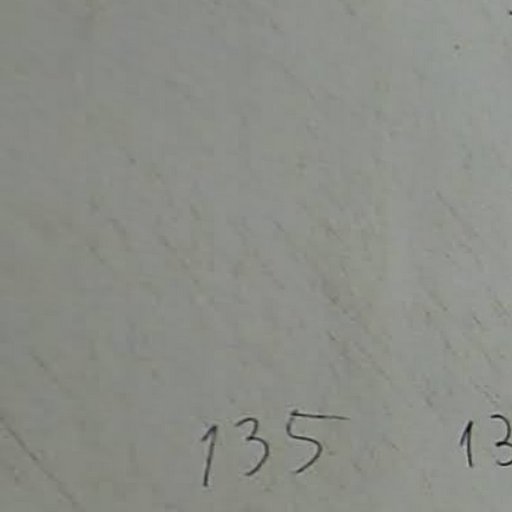 135 13